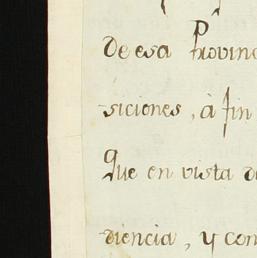 de esa Provinc
siciones, à fin
Que en vista d
diencia, y con